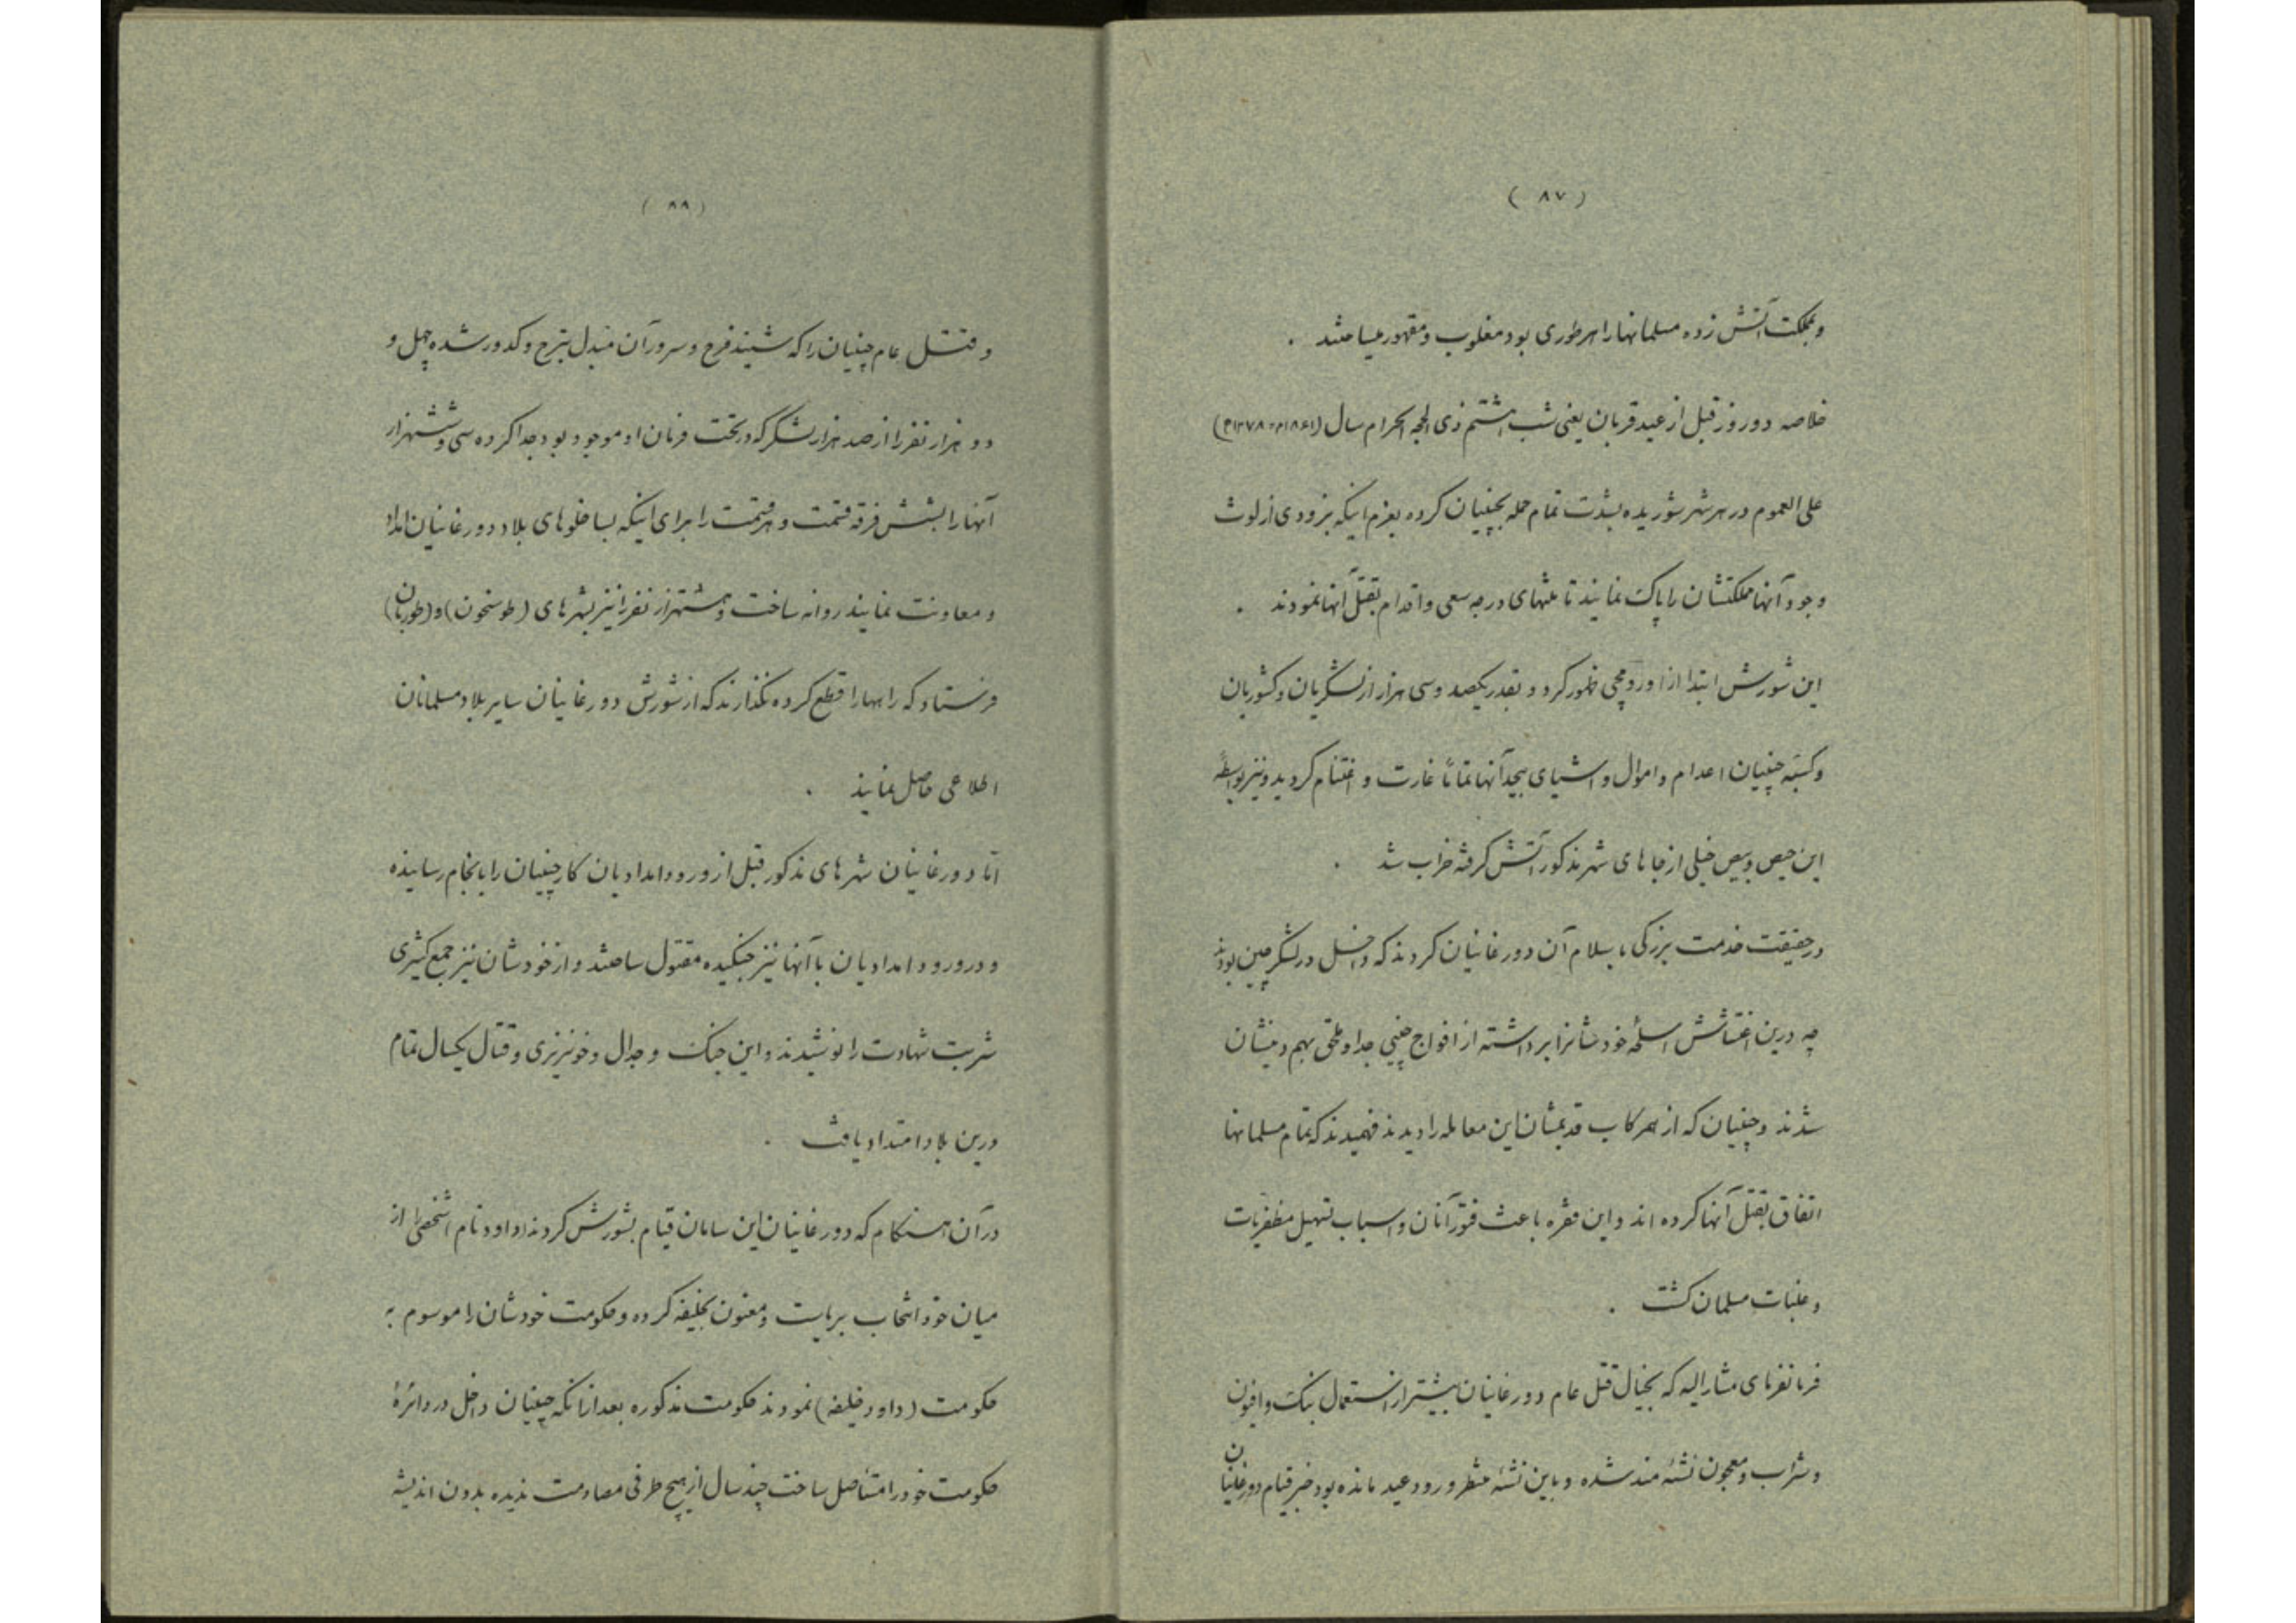 ( ۸۷ )
وبمملکت آتش زده مسلمانهارا هرطوری بود مغلوب ومقهور میساختند .
خلاصه دو روز قبل از عید قربان یعنی شب هشتم ذی الحجه الحرام سال (۱۸۶۱م ۱۲۷۸ه)
علی العموم در هر شهر شوریده بشدت تمام حمله بچینیان کرده بعزم اینکه بزودی از لوث
وجود آنها مملکتشان را پاک نمایند تا منتهای درجه سعی واقدام بقتل آنها نمودند .
این شورش ابتدا از اورومچی ظهور کرد و بقدر یکصد وسی هزار از لشگریان وکشوریان
وکسبهٔ چینیان اعدام واموال واشیای بیحد آنها تماماً غارت و اغتنام گردید ونیز بواسطهٔ
این حیص وبیص خیلی از جاهای شهر مذکور آتش گرفته خراب شد .
درحقیقت خدمت بزرگی باسلام آن دورغانیان کردند که داخل در لشگر چین بودند
چه درین اغتشاش اسلحهٔ خودشانرا برداشته از افواج چینی جدا وملحق بهم دینشان
شدند وچینیان که از همرکاب قدیمشان این معامله را دیدند فهمیدند که تمام مسلمانها
اتفاق بقتل آنها کرده اند واین فقره باعث فتور آنان واسباب تسهیل مظفریات
وغلبات مسلمان گشت .
فرمانفرمای مشارالیه که بخیال قتل عام دورغانیان بیشتر از استعمال بنگ وافیون
وشراب ومعجون نشئه مند شده وباین نشئه منتظر ورود عید مانده بود خبر قیام دورغانیان
( ۸۸ )
وقتل عام چینیان را که شنید فرح وسرور آن مبدل بترح وکدور شده چهل و
دو هزار نفر را از صد هزار لشگر که در تحت فرمان او موجود بود جدا کرده سی وششهزار
آنهارا بشش فرقه قسمت وهر قسمت را برای اینکه بساخلوهای بلاد دورغانیان امداد
ومعاونت نمایند روانه ساخت وششهزار نفر را نیز بشهرهای (طوسنخون) و (طوربان)
فرستاد که راههارا قطع کرده نگذارند که از شورش دورغانیان سایر بلاد مسلمانان
اطلاعی حاصل نمایند .
اما دورغانیان شهرهای مذکور قبل از ورود امدادیان کار چینیان را بانجام رسانیده
ودر ورود امدادیان با آنها نیز جنگیده مقتول ساختند واز خودشان نیز جمع کثیری
شربت شهادت را نوشیدند واین جنگ وجدال وخونریزی وقتال یکسال تمام
درین بلاد امتداد یافت .
در آن هنگام که دورغانیان این سامان قیام بشورش کردند داود نام شخص را از
میان خود انتخاب بریاست ومعنون بخلیفه کرده وحکومت خودشان را موسوم به
حکومت (داود خلیفه) نمودند حکومت مذکوره بعد از آنکه چینیان داخل در دائرهٔ
حکومت خود را مستأصل ساخت چند سال از هیچ طرفی مصادمت ندیده بدون اندیشه